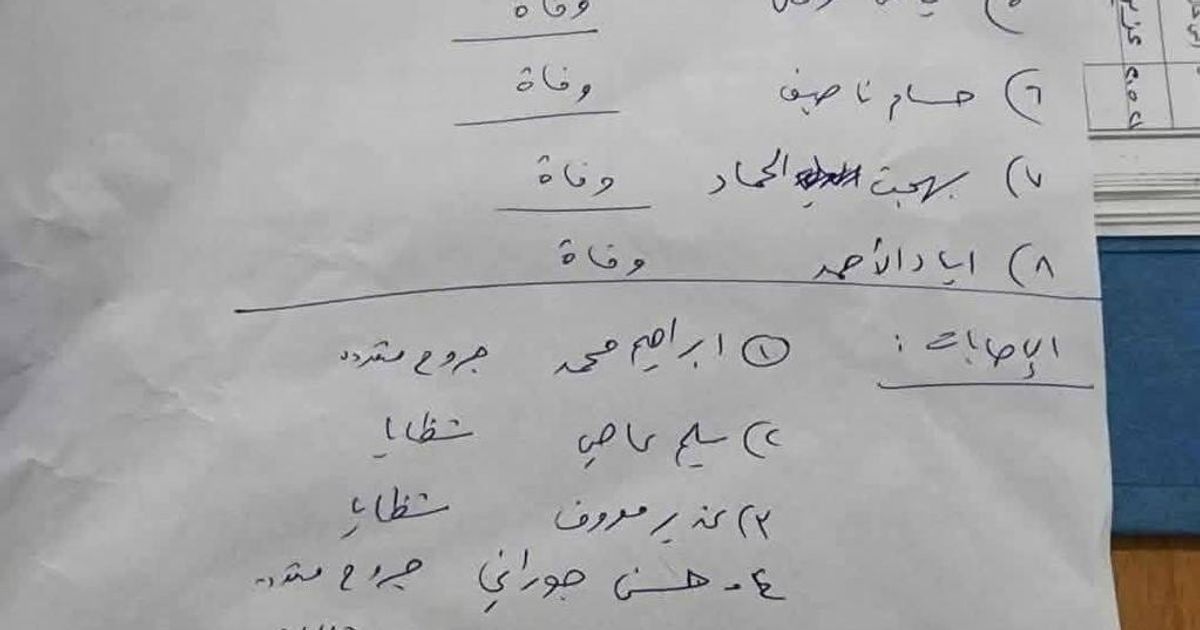 وفاة
٦) حسام ناصيف وفاة
٧) بهجت الحماد وفاة
٨) اياد الأحمد وفاة
الإصابات :
١ ابراهيم محمد جروح متعددة
٢) سليم عاصي شظايا
٣) غدير معروف شظايا
٤ - حسن جوراني جروح متعددة